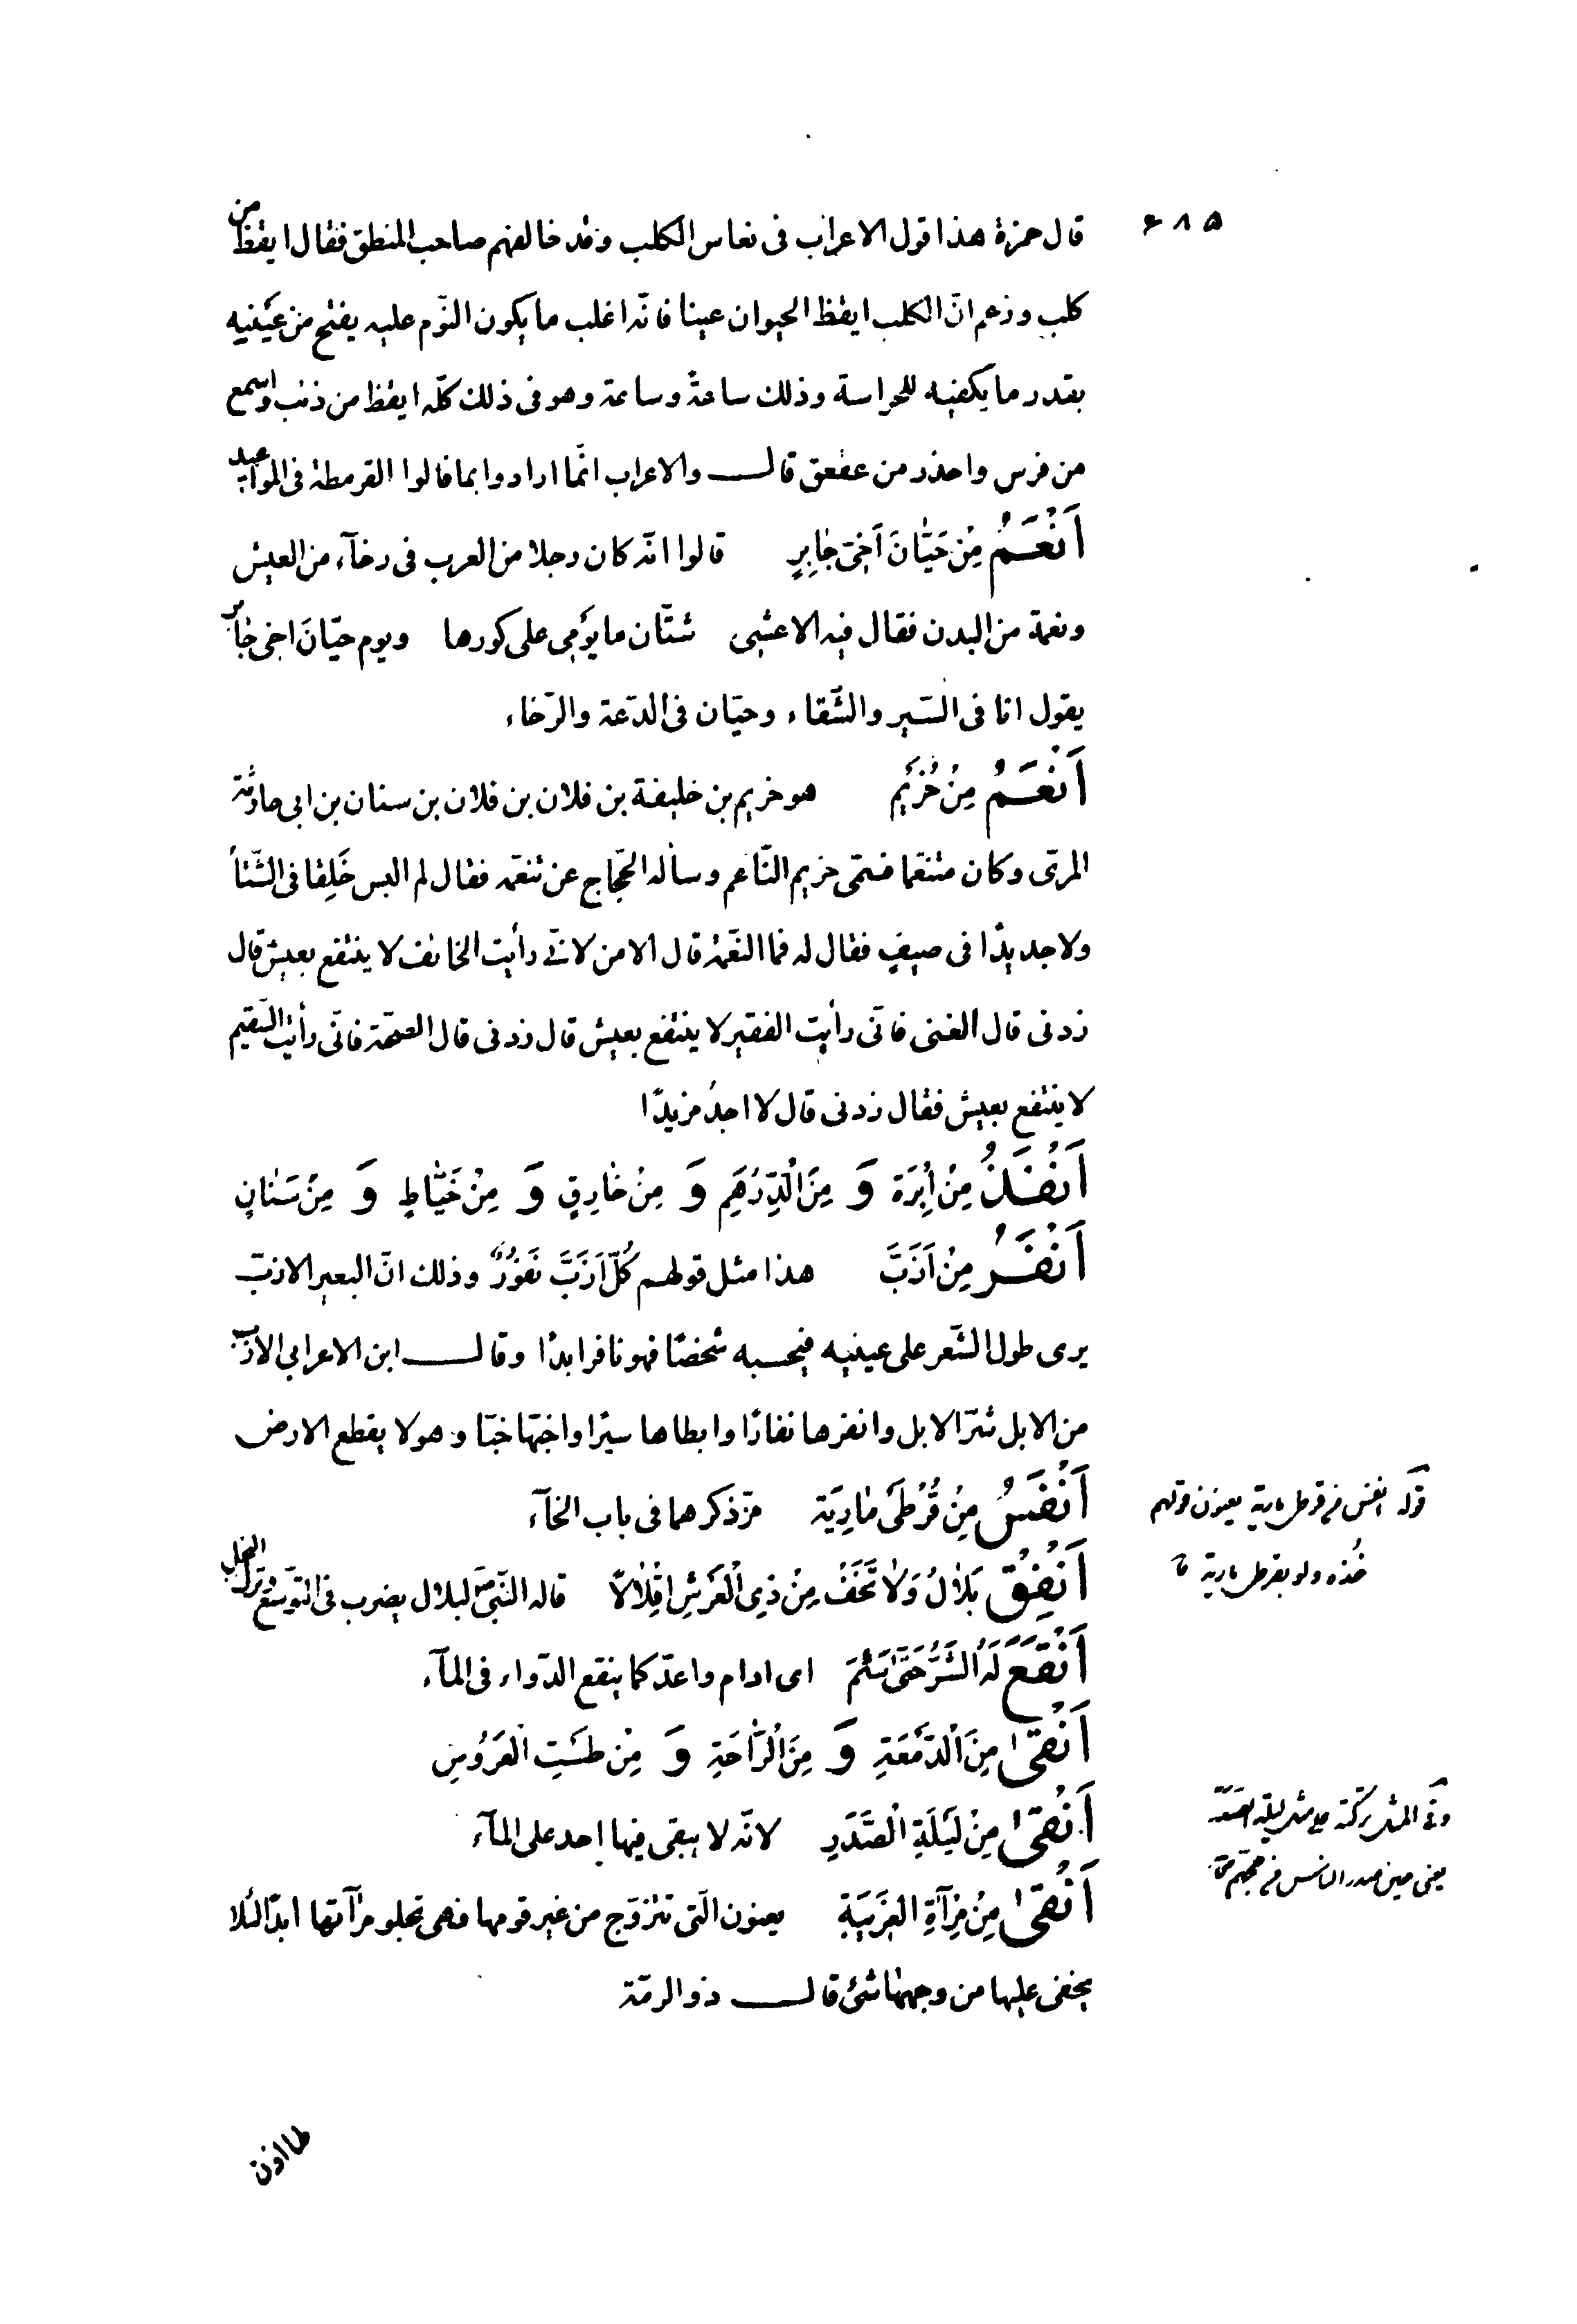 ۶۸۵
قال حمزة هذا قول الاعراب فى نعاس الكلب وقد خالفهم صاحب المنطق فقال ايقظ من
كلب وزعم انّ الكلب ايقظ الحيوان عينا فانّه اغلب ما يكون النّوم عليه يفتح من عَيْنيه
بقدر ما يكفيه للحراسة وذلك ساعةً وساعة وهو فى ذلك كلّه ايقظ من ذئب واسمع
من فرس واحذر من عقعق قال والاعراب انّما ارادوا بما قالوا القرمطة فى المواعيد
اَنْعَمُ مِنْ حَيّٰانَ اَخِىْ جٰابِرٍ قالوا انّه كان رجلا من العرب فى رخآء من العيش
ونعمة من البدن فقال فيه الاعشى شتّان ما يوْمِى على كورها ويوم حيّانَ اخى جٰابر
يقول انا فى السّير والشّقاء وحيّان فى الدّعة والرّخاء
اَنْعَمُ مِنْ خُرَيْمٍ هو خريم بن خليفة بن فلان بن فلان بن سنان بن ابى حارثة
المرّى وكان متنعّما فسمّى خريم النّاعم وسأله الحجّاج عن تنعّمه فقال لم البس خَلِقا فى الشّتأ
ولا جديدًا فى صيفٍ فقال له فما النّعمة قال الامن لانّى رأيت الخائف لا ينتفع بعيش قال
زدنى قال الغنى فانّى رأيت الفقير لا ينتفع بعيش قال زدنى قال الصحّة فانّى رأيت السّقيم
لا ينتفع بعيش فقال زدنى قال لا اجدُ مزيدًا
اَنْفَذُ مِنْ اِبْرَة وَ مِنَ الْدِّرْهَمِ وَ مِنْ خٰارِقٍ وَ مِنْ خَيّٰاطٍ وَ مِنْ سَنٰانٍ
اَنْفَرُ مِنْ اَزَبَّ هذا مثل قولهم كُلّ اَزَبَّ نَفَوُرٌ وذلك انّ البعير الازبّ
يرى طول الشّعر على عينيه فيحسبه شخصًا فهو نافر ابدًا وقال ابن الاعرابى الازبّ
من الابل شرّ الابل وانفرها نفارًا وابطاها سيرًا واخبّها خبّا وهو لا يقطع الارض
اَنْفَسُ مِنْ قُرْطَىْ مٰارِيَة مرّ ذكرهما فى باب الخآء
قوله انفس من قرطى مارية يعنون قولهم
خُذه ولو بقرطى مارية
اَنْفِقْ بَلٰالُ وَلٰا تَخَفْ مِنْ ذِى الْعَرْشِ اِقْلٰالًا قاله النّبى ص لبلال يضرب فى التوسّع وترك البخل
اَنْقَعَ لَهُ الشَّرَّ حَتّٰى سَئِمَ اى ادام واعدّ كما ينقع الدّواء فى المآء
اَنْقىٰ مِنَ الْدَّمْعَةِ وَ مِنَ الْرّٰاحَةِ وَ مِنْ طَسْتِ الْعَرُوسِ
اَنْقىٰ مِنْ لَيْلَةِ الْصَّدَرِ لانّه لا يبقى فيها احد على المآء
وفى المثل تركته على مثل ليلة الصدر
يعنى حين صدر الناس من حجهم
اَنْقىٰ مِنْ مِرْآةِ الغَرِيْبَةِ يعنون الّتى تتزوّج من غير قومها فهى تجلو مرآتها ابدًا لئلا
يخفى عليها من وجهها شئ قال ذو الرمّة